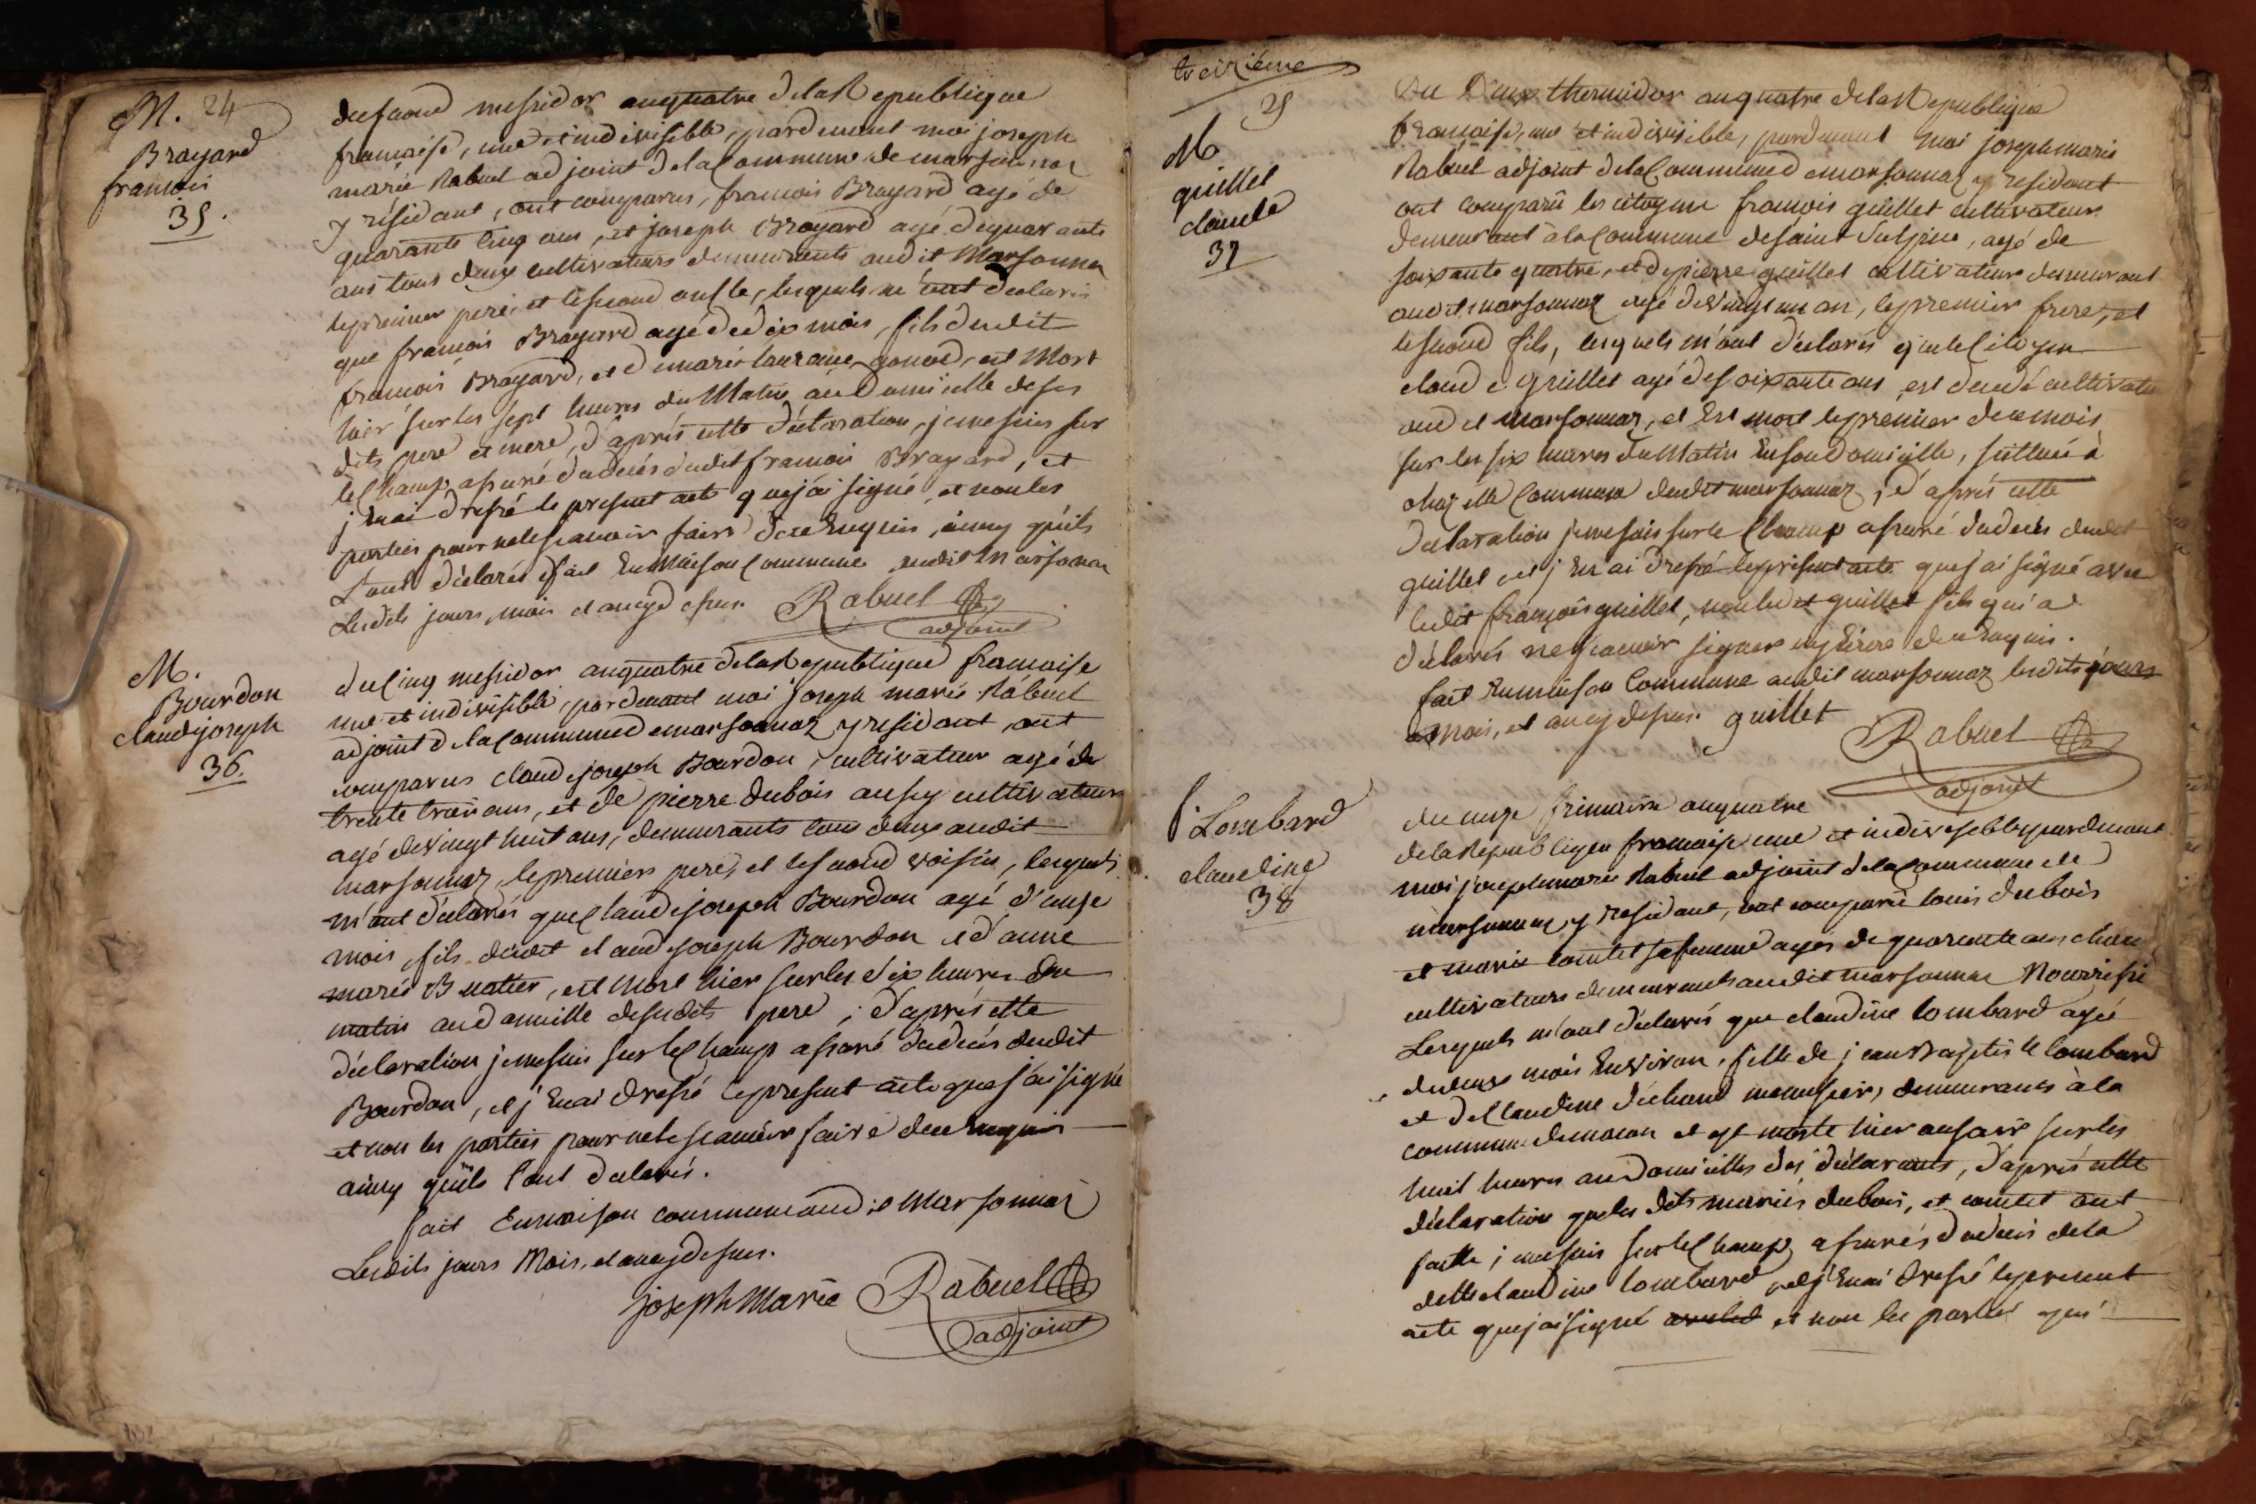 M. 24
Brayard
francois
35.
du second messidor an quatre de la Republique
francaise, une et indivisible, pardevant moi joseph
marie Rabuel adjoint de la Commune de marsonnaz
y résidant, ont comparus, francois Brayard agé de
quarante cinq ans, et joseph Brayard agé de quarante
ans tous deux cultivateurs demeurants audit Marsonnaz
le premier pere, et le second oncle, lesquels m'ont déclarés
que francois Brayard agé de dix mois, fils dudit
francois Brayard, et de marie laurance gonod, est Mort
hier sur les sept heures du Matin au Domicille de ses
dits pere et mere, d'après cette déclaration, je me suis sur
le Champ assuré du decés dudit francois Brayard, et
j'en ai dressé le present acte que j'ai signé, et non les
parties pour ne le scavoir faire de ce Enquis, ainsy qu'ils
L'ont déclarés fait En Maison Commune audit Marsonnaz
Lesdits jours, mois et an cy dessus. Rabuel
adjoint
M.
Bourdon
claude joseph
36.
du Cinq messidor an quatre de la Republique francaise
une et indivisible, pardevant moi joseph marie Rabuel
adjoint de la Commune de marsonnaz y residant, ont
comparus claude joseph Bourdon, cultivateur agé de
trente trois ans, et de pierre dubois aussy cultivateur
agé de vingt huit ans, demeurants tous deux audit
marsonnaz, le premier pere, et le second voisin, lesquels
m'ont déclarés que Claude joseph Bourdon agé d'onze
mois, fils dudit claude joseph Bourdon et d'anne
marie Buatier, est Mort hier sur les dix heures du
matin au domicille desdits pere, d'après cette
déclaration je me suis sur le Champ assuré du decés dudit
Bourdon, et j'En ai dressé le present acte que j'ai signé
et non les parties pour ne le scavoir faire de ce enquis
ainsy qu'ils l'ont déclarés.
fait En maison commune audit Marsonnaz
Lesdits jours Mois, et an cy dessus.
joseph Marie Rabuel
adjoint
treizième
25
M
guillet
claude
37
Du Deux thermidor an quatre de la Republique
francaise, une et indivisible, pardevant moi joseph marie
Rabuel adjoint de la Commune de marsonnaz y residant
ont comparû les citoyens francois guillet cultivateur
demeurant à la Commune de saint Sulpice, agé de
soixante quatre, et de pierre guillet cultivateur demeurant
audit marsonnaz agé de vingt un an, le premier frere, et
le second fils, lesquels m'ont déclarés que le Citoyen
claude guillet agé de soixante ans, est decedé cultivateur
audit marsonnaz, et Est mort le premier de ce mois
sur les six heures du Matin En son Domicille, sittuée à
Commune dudit marsonnaz, d'après cette
déclaration je me suis sur le Champ assuré du decés dudit
guillet et j'En ai dressé le present acte que j'ai signé avec
ledit francois guillet, non ledit guillet fils qui a
déclarés ne scavoir signer de ce Enquis.
fait En maison Commune audit marsonnaz lesdits jours
mois, et an cy dessus. guillet Rabuel
adjoint
Lombard
claudine
38
du onze frimaire an quatre
de la Republique francaise une et indivisible pardevant
moi joseph marie Rabuel adjoint de la commune de
marsonnaz y residant, ont comparû louis dubois
et marie comtet sa femme agés de quarante ans chacun
cultivateurs demeurants audit marsonnaz Nourrissi
Lesquels m'ont déclarés que claudine lombard agée
de deux mois Environ, fille de jean Baptiste lombard
et de Claudine déchaud menusier, demeurants à la
commune de macon et est morte hier au soir sur les
huit heures au Domicilles des déclarants, d'après cette
déclaration que les dits mariés dubois, et comtet ont
faitte, je me suis sur le Champ assurés du decés de la
ditte claudine lombard, et j'En ai dressé le present
acte que j'ai signé et non les parties qui